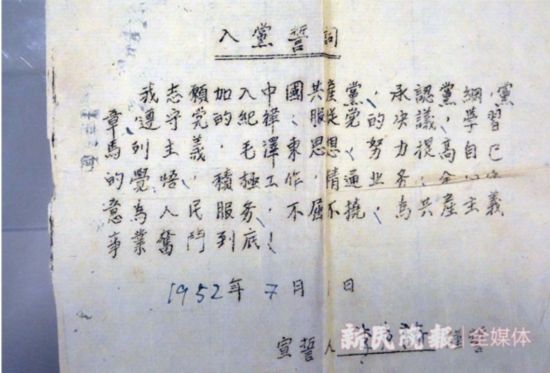 入黨誓詞
我志願加入中國共產黨、承認黨綱、黨
章、遵守党的紀律、服從党的决議,學習
馬列主義毛澤東思想、努力提高自己
的覺悟、積極工作、精通业务、全
意為人民服务、不屈不撓、為共產主義
事業奮鬥到底!
1952年7月 日
宣誓人
新民晚報|全媒体